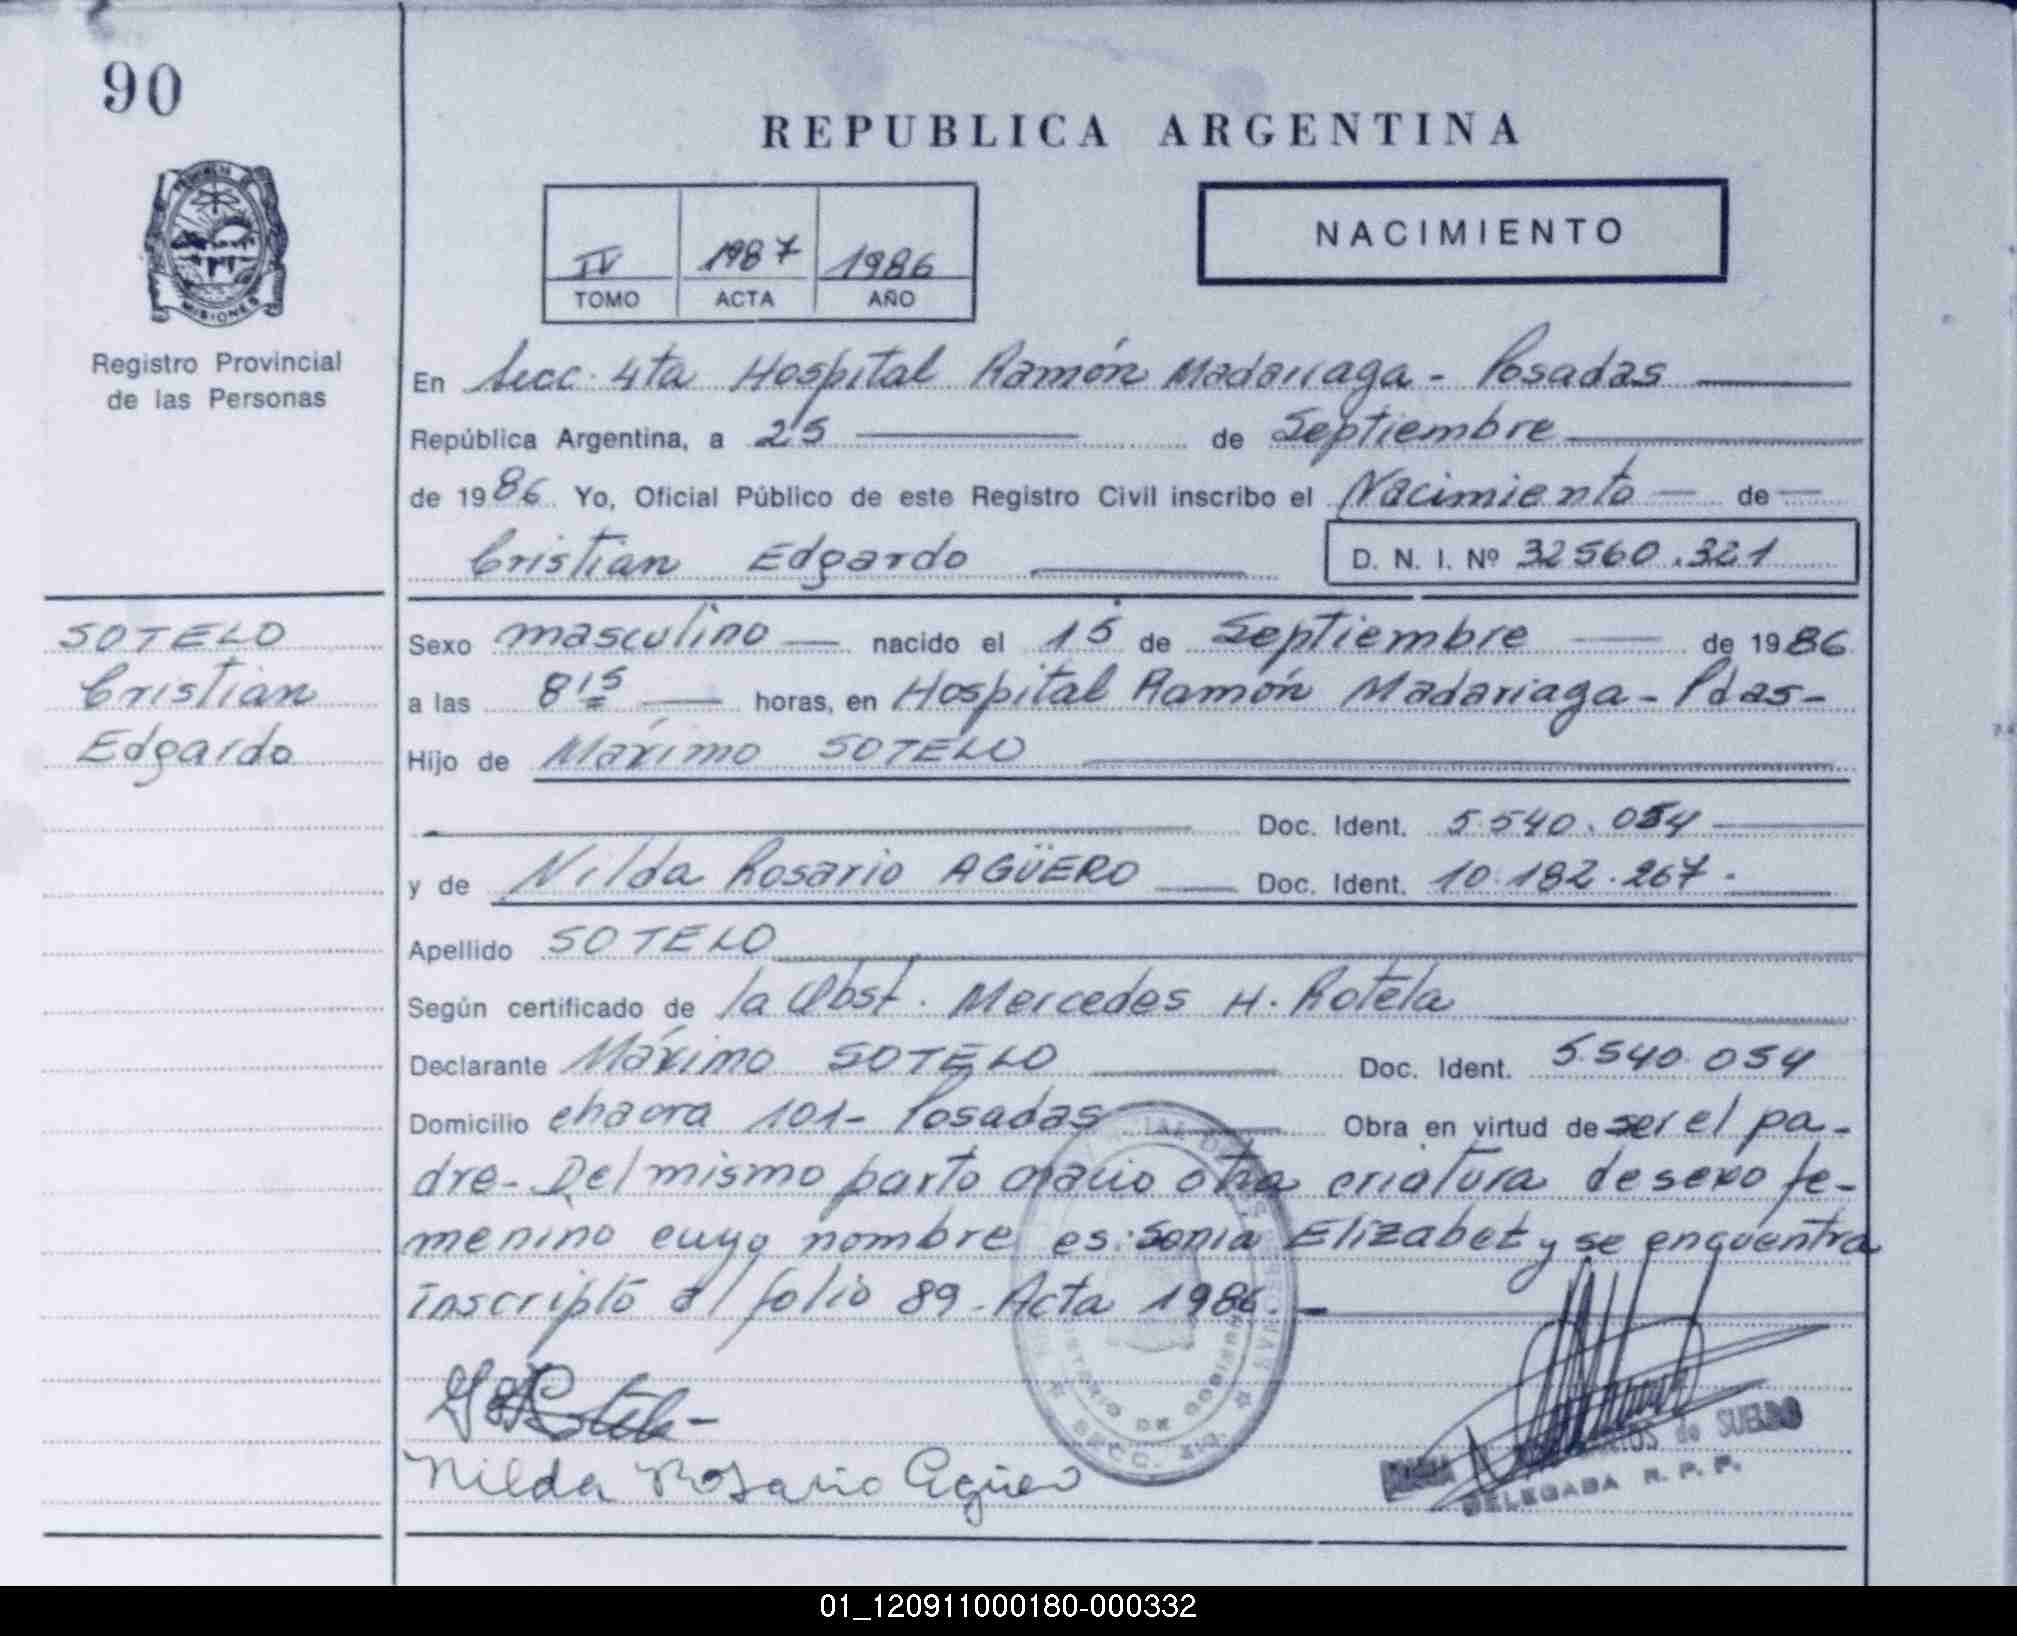 90
REPUBLICA ARGENTINA
NACIMIENTO
IV 1987 1986
TOMO ACTA AÑO
MISIONES
Registro Provincial
de las Personas
En Secc. 4ta Hospital Ramón Madariaga - Posadas
República Argentina, a 25 de Septiembre
de 1986 Yo, Oficial Público de este Registro Civil inscribo el Nacimiento de
Cristian Edgardo D. N. I. Nº 32560.321
SOTELO
Cristian
Edgardo
Sexo masculino nacido el 15 de Septiembre de 1986
a las 8 15 horas, en Hospital Ramón Madariaga - Pdas -
Hijo de Máximo SOTELO
Doc. Ident. 5.540.054
y de Nilda Rosario AGÜERO Doc. Ident. 10.182.267.
Apellido SOTELO
Según certificado de la Obst. Mercedes H. Rotela
Declarante Máximo SOTELO Doc. Ident. 5.540.054
Domicilio chacra 101 - Posadas Obra en virtud de ser el pa-
dre - Del mismo parto nacio otra criatura de sexo fe-
menino cuyo nombre es: Sonia Elizabet y se encuentra
inscripto al folio 89 - Acta 1986. -
MINISTERIO DE GOBIERNO
SECC. 4ta.
Nilda Rosario Agüero
de SUELDO
DELEGADA R. P. P.
01_120911000180-000332